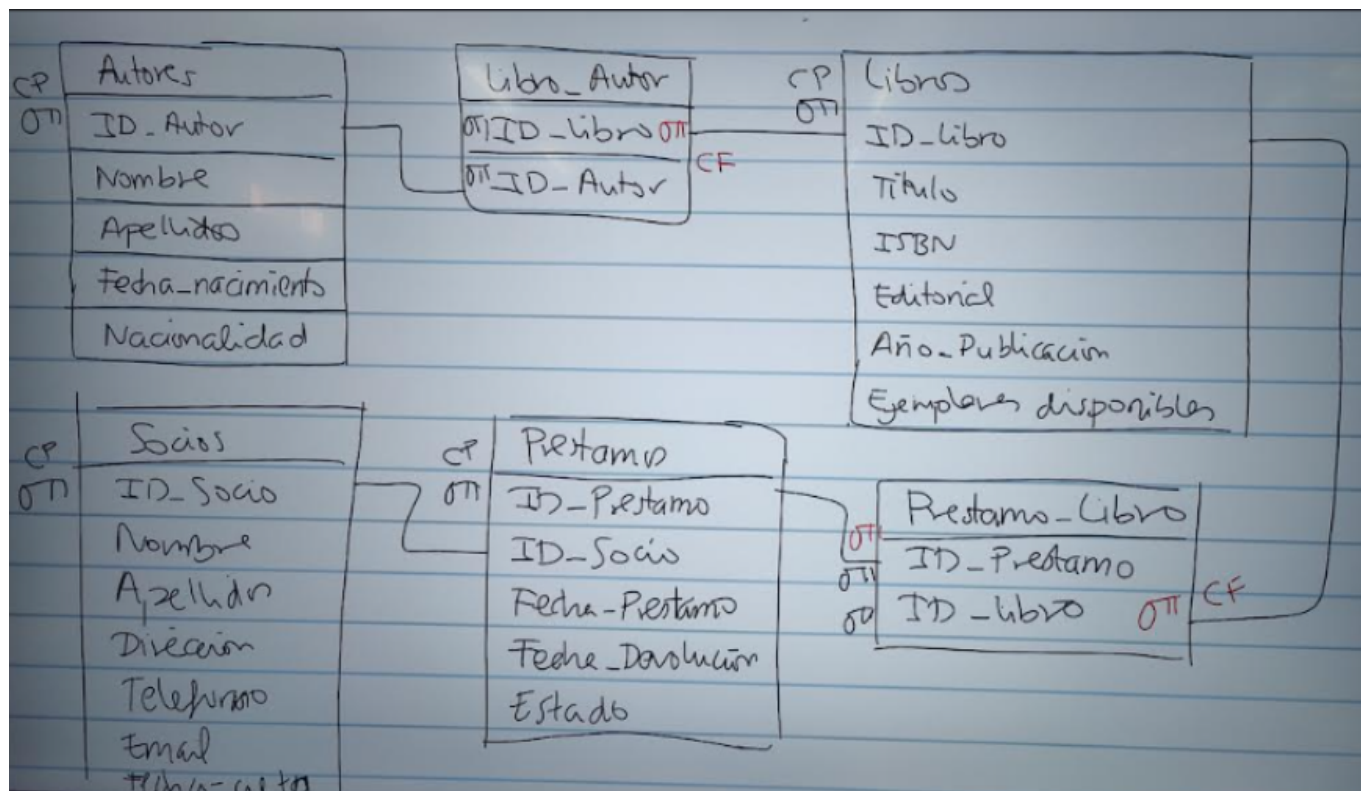 CP
Autores
ID_Autor
Nombre
Apellidos
Fecha_nacimiento
Nacionalidad
Libro_Autor
ID_Libro
CF
ID_Autor
CP
Libros
ID_Libro
Título
ISBN
Editorial
Año_Publicación
Ejemplares disponibles
CP
Socios
ID_Socio
Nombre
Apellidos
Dirección
Telefono
Email
CP
Prestamo
ID_Prestamo
ID_Socio
Fecha_Prestamo
Fecha_Devolución
Estado
Prestamo_Libro
ID_Prestamo
ID_libro
CF